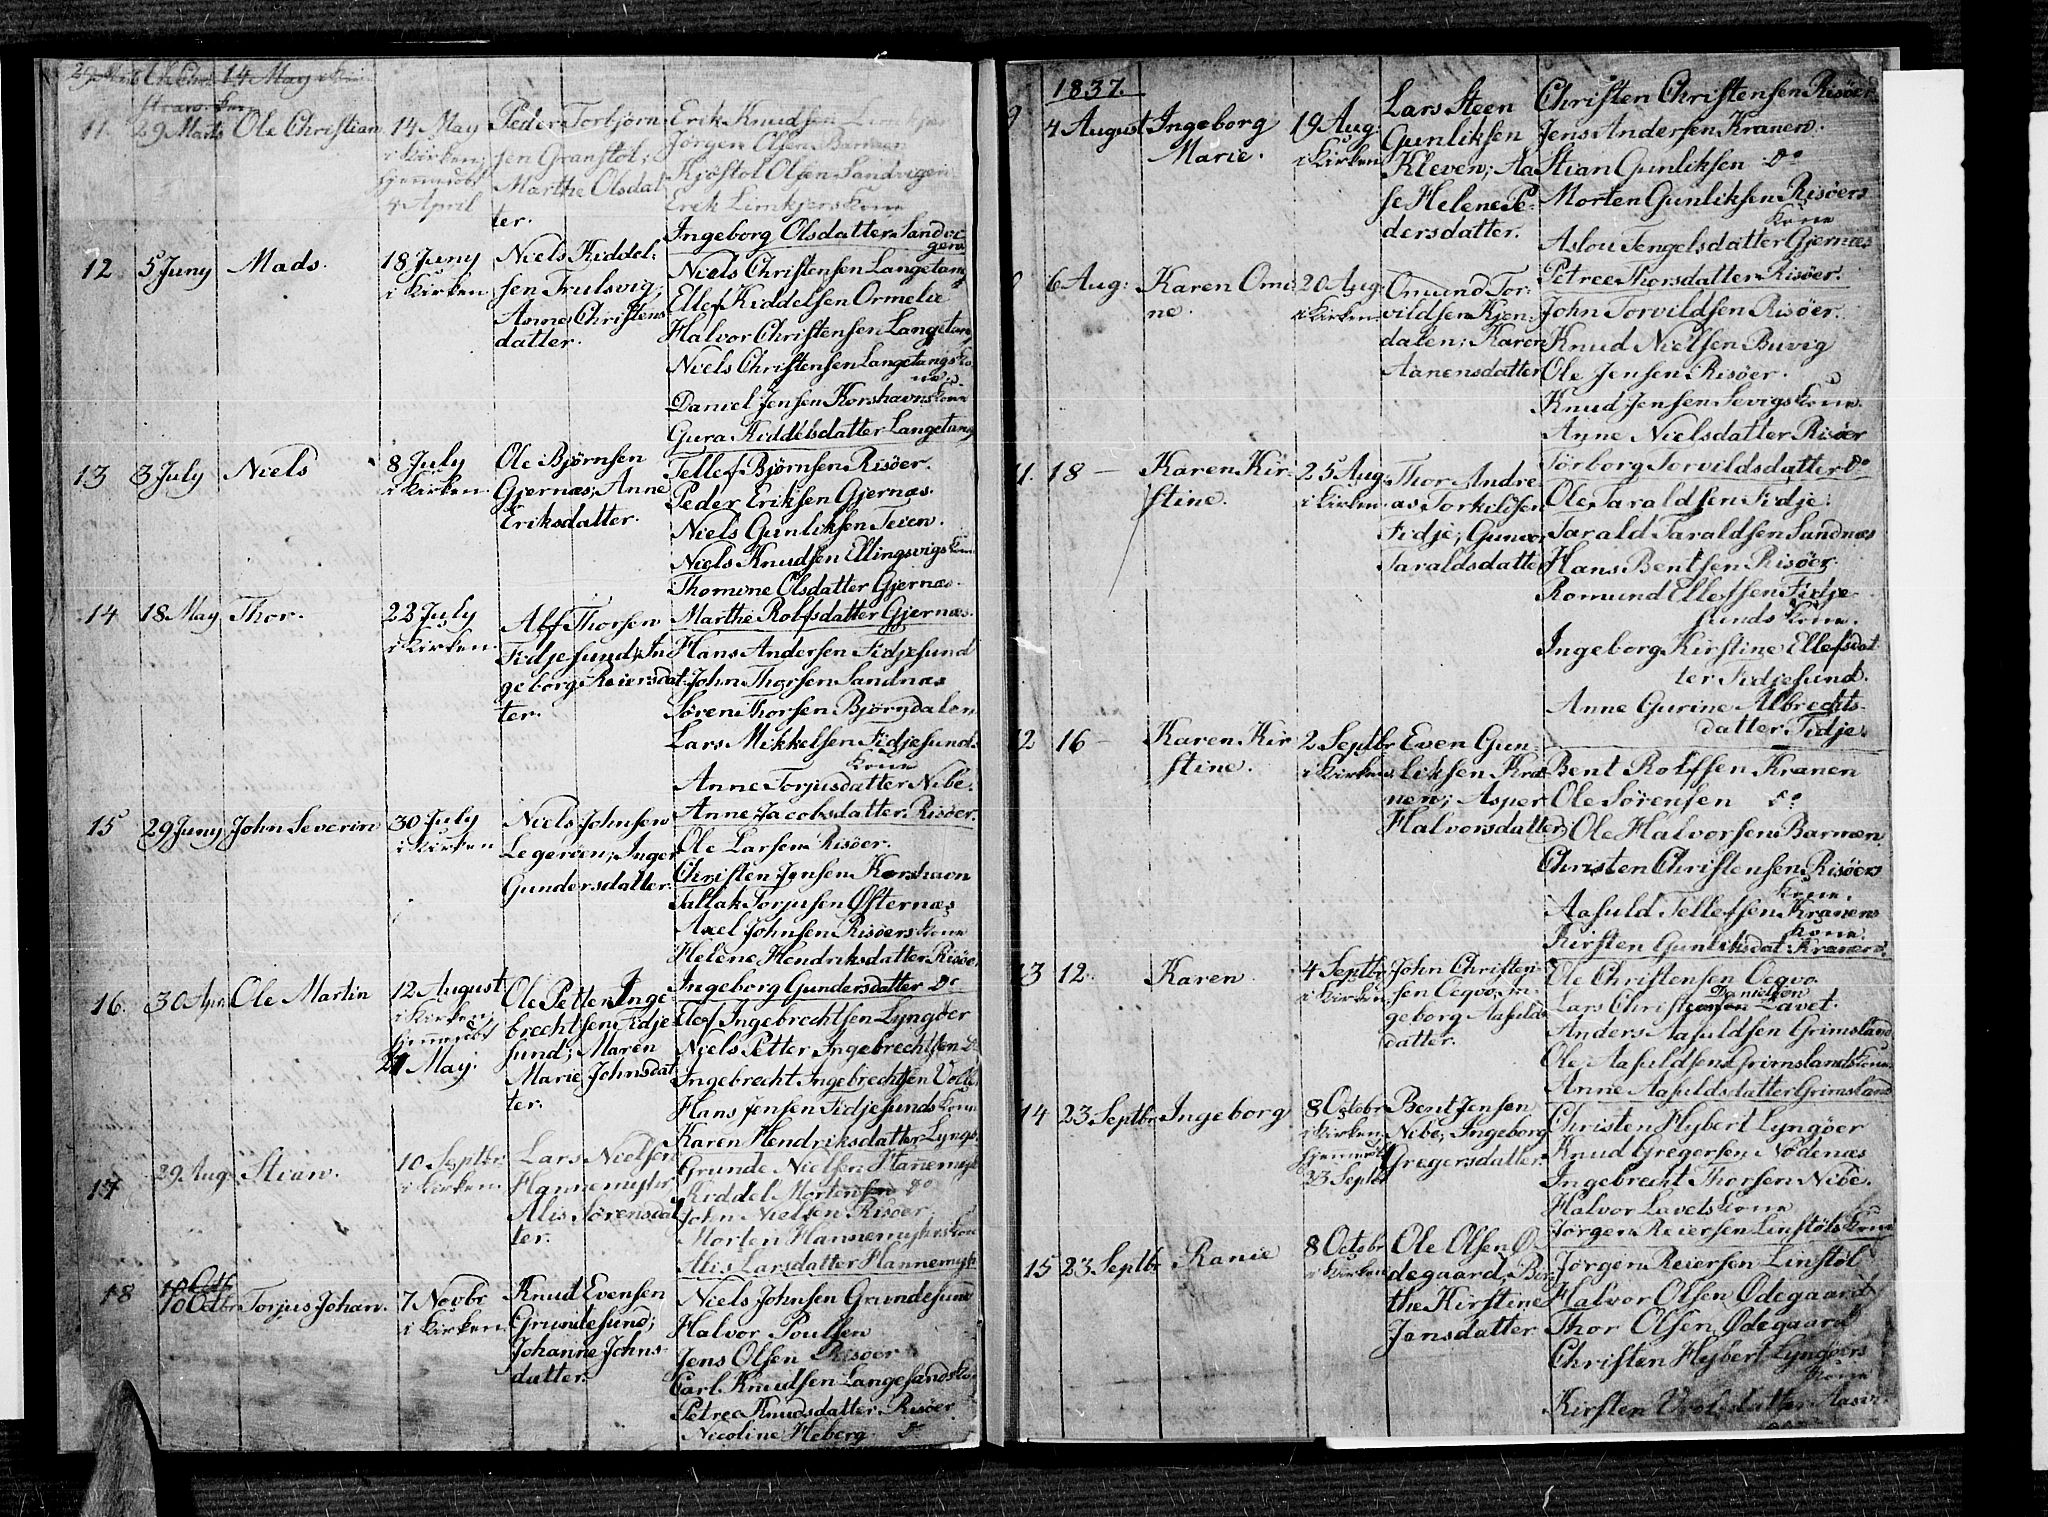 14 May
11. 29 Marts Ole Christian 14 May i Kirken; hjemmedøbt 4 April
Peder Torbjørn-
sen Granstøl;
Marthe Olsdat-
ter.
Erik Knudsen
Jørgen Olsen Barmen
Kjøstol Olsen Sandvigen
Erik Limkjers Kone
Ingeborg Olsdatter Sandvi-
gen
12 5 Juny Mads. 18 Juny i Kirken
Niels Kiddel-
sen Trulsvig;
Anne Christens
datter.
Niels Christensen Langetang
Ellef Kiddelsen Ormelie
Halvor Christensen Langetang
Niels Christensen Langetangs Ko
ne
Daniel Jensen Korshavns Kone
Gura Kiddelsdatter Langetang
13 3 July Niels 8 July i Kirken
Ole Bjørnsen
Gjernæs; Anne
Eriksdatter.
Tellef Bjørnsen Risøer.
Peder Eriksen Gjernæs.
Niels Gunliksen Teien.
Niels Knudsen Ellingsvigs Kone
Thomine Olsdatter Gjernæs.
Marthe Rolfsdatter Gjernæs.
14 18 May Thor. 22 July i Kirken.
Alf Thorsen
Fidjesund; In
geborg Reiersdat-
ter.
Hans Andersen Fidjesund
John Thorsen Sandnæs
Søren Thorsen Bjørndalen
Lars Mikkelsen Fidjesunds
Kone
Anne Torjusdatter Nibe.
Anne Jacobsdatter Risøer.
15 29 Juny John Severin 30 July i Kirken
Niels Johnsen
Legerøen; Inger
Gundersdatter.
Ole Larsen Risøer.
Christen Jensen Korshavn
Taltak Torjusen Østernæs
Axel Johnsen Risøers Kone
Helene Hendriksdatter Risøer
Ingeborg Gundersdatter do
16. 30 Apr. Ole Martin 12 August i Kirken; hjemmedøbt 21 May.
Ole Petter Inge
brechtsen Fidje
sund; Maren
Marie Johnsdat
ter.
Elef Ingebrechtsen Lyngøer
Niels Petter Ingebrechtsen
Ingebrecht Ingebrechtsen
Hans Jensen Fidjesunds Kone
Karen Hendriksdatter Lyngø
17 29 Aug. Stian. 10 Septbr i Kirken
Lars Nielsen
Hannemyhr
Alis Sørensdat
ter.
Grunde Nielsen Hannemyhr
Kiddel Mortensen do
John Nielsen Risøer
Morten Hannemyhrs Kone
Alis Larsdatter Hannemyhr
18 10 Octbr Torjus Johan. 7 Novbr i Kirken
Knud Evensen
Grundesund;
Johanne Johns-
datter.
Niels Johnsen Grundesund
Halvor Poulsen
Jens Olsen Risøer
Carl Knudsen Langesands Ko
Petrea Knudsdatter Risøer
Nicoline Heberg do
1837.
9 4 August Ingeborg Marie. 19 Aug: i Kirken
Lars Steen
Gunliksen
Kleven; Aa
se Helene Pe-
dersdatter.
Christen Christensen Risøer
Jens Andersen Kranen.
Stian Gunliksen do
Morten Gunliksen Risøers
Kone
Aslou Tengelsdatter Gjernæs
Petree Thorsdatter Risøer.
6 Aug: Karen Omi ne. 20 Aug: i Kirken
Omund Tor-
vildsen Kjen-
dalen; Karen
Aanensdatter
John Torvildsen Risøer.
Knud Nielsen Buvig
Ole Jensen Risøer.
Knud Jensen Sevigs Kone.
Anne Nielsdatter Risøer
Sørborg Torvildsdatter do
11. 18 — Karen Kir- stine. 25 Aug. i Kirken
Thor Andre
as Torkildsen
Fidje; Gunvor
Taraldsdatter
Ole Taraldsen Fidje.
Tarald Taraldsen Sandnæs
Hans Bentsen Risøer
Romund Ellefsen Fidje
sunds Kone.
Ingeborg Kirstine Ellefsdat
ter Fidjesund.
Anne Gurine Albrechts-
datter Fidje.
12 16 — Karen Kir stine. 2 Septbr i Kirken
Even Gun-
liksen Kra
nen; Asper
Halvorsdatter;
Bent Rolfsen Kranen
Ole Sørensen do
Ole Halvorsen Barmen
Christen Christensen Risøers
Kone.
Aasuld Tellefsen Kranens
Kone.
Kirsten Gunliksdat. Kranen.
13 12 Karen 4 Septbr i Kirken
John Christen-
sen Oegvo; In
geborg Aasulds
datter.
Ole Christensen Oegvo
Danielsen
Lars Christensen Lavet.
Anders Aasuldsen Grimsland
Ole Aasuldsen Grimslands Kone
Anne Aasuldsdatter Grimsland
14 23 Septbr Ingeborg 8 Octobr i Kirken; hjemmedøbt 23 Septbr
Bent Jensen
Nibe; Ingeborg
Gregersdatter.
Christen Hybert Lyngøer
Knud Gregersen Nødenæs
Ingebrecht Thorsen Nibe.
Halvor Lavets Kone
Jørgen Reiersen Linstøls Kone
15 23 Septbr Ranie 8 Octobr i Kirken
Ole Olsen Ø-
degaard; Ber-
the Kirstine
Jensdatter
Jørgen Reiersen Linstøl
Halvor Olsen Ødegaard
Thor Olsen Ødegaard
Christen Hybert Lyngøers
Kone
Kirsten